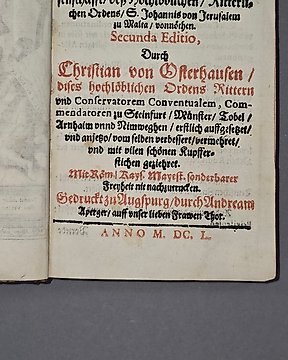 senschafft/ deß Hochlöblichen/ Ritterli-
chen Ordens/ S. Johannis von Jerusalem
zu Malta/ vonnöthen.
Secunda Editio,
Durch
Christian von Osterhausen/
dises hochlöblichen Ordens Rittern
vnd Conservatorem Conventualem, Com-
mendatoren zu Steinfurt/ Münster/ Tobel/
Arnhaim vnnd Nimweghen/ erstlich außgesetzet/
vnd anjetzo/ vom selben verbessert/ vermehret/
vnd mit vilen schönen Kupffer-
stichen geziehret.
Mit Röm. Kays. Mayest. sonderbarer
Freyheit nie nachzutrucken.
Gedruckt zu Augspurg/ durch Andream
Aperger/ auff vnser lieben Frawen Thor.
ANNO M. DC. L.